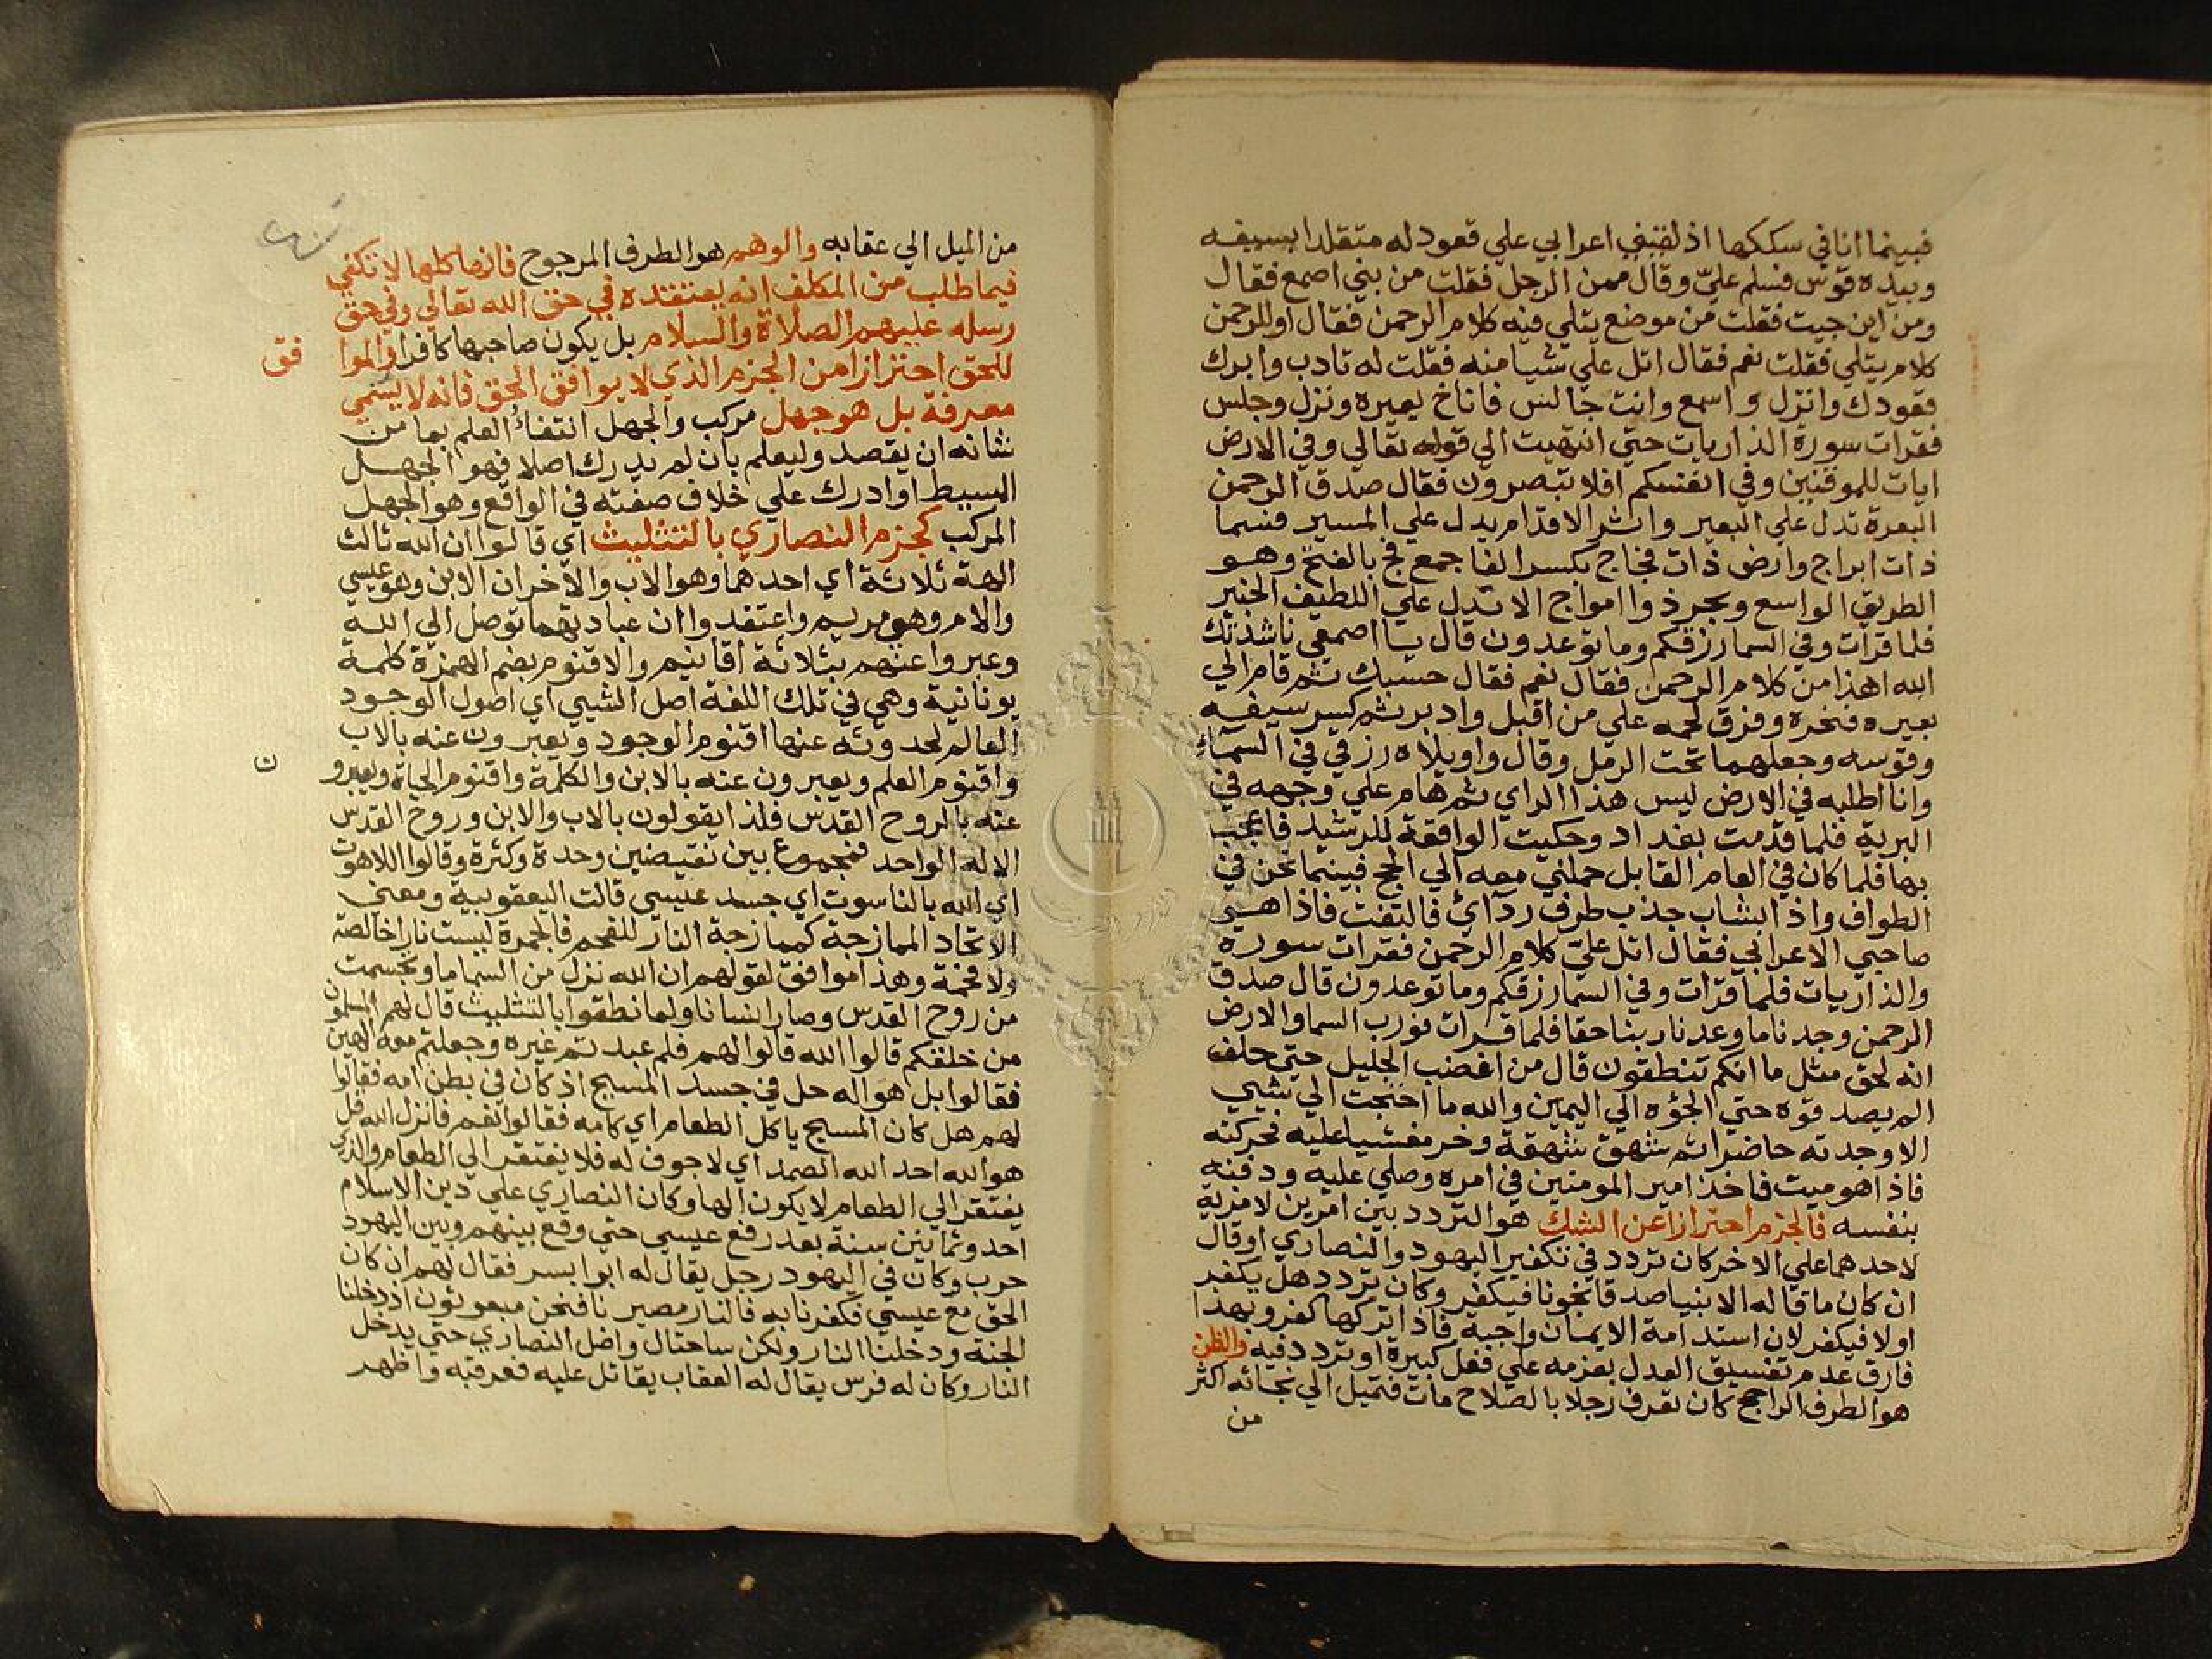 فبينما انا في سككها اذ لقيني اعرابي علي قعود له متقلدا بسيفه
وبيده قوس فسلم عليّ وقال ممن الرجل فقلت من بني اصمع فقال
ومن اين جيت فقلت من موضع يتلي فيه كلام الرحمن فقال اوللرحمن
كلام يتلي فقلت نعم فقال اتل علي شيا منه فقلت له تادب وابرك
قعودك وانزل واسمع وانت جالس فاناخ بعيره ونزل وجلس
فقرات سورة الذاريات حتي انتهيت الي قوله تعالي وفي الارض
ايات للموقنين وفي انفسكم افلا تبصرون فقال صدق الرحمن
البعرة تدل علي البعير واثر الاقدام يدل علي المسير فسما
ذات ابراج وارض ذات فجاج بكسر الفا جمع فج بالفتح وهو
الطريق الواسع وبحر ذو امواج الا تدل علي اللطيف الخبير
فلما قرات وفي السما رزقكم وما توعدون قال يا اصمعي ناشدتك
الله اهذا من كلام الرحمن فقال نعم فقال حسبك ثم قام الي
بعيره فنحره وفرق لحمه علي من اقبل وادبر ثم كسر سيفه
وقوسه وجعلهما تحت الرمل وقال واويلاه رزقي في السماء
وانا اطلبه في الارض ليس هذا الراي ثم هام علي وجهه في
البرية فلما قدمت بغداد وحكيت الواقعة للرشيد فاعجب
بها فلما كان في العام القابل حملني معه الي الحج فبينما نحن في
الطواف واذا بشاب جذب طرف ردائ فالتفت فاذا هو
صاحبي الاعرابي فقال اتل عليّ كلام الرحمن فقرات سورة
والذاريات فلما قرات وفي السما رزقكم وما توعدون قال صدق
الرحمن وجدنا ما وعدنا ربنا حقا فلما قرات فورب السما والارض
انه لحق مثل ما انكم تنطقون قال من اغضب الجليل حتي حلف
الم يصدقوه حتي الجؤه الي اليمين والله ما احتجت الي شيي
الا وجدته حاضرا ثم شهق شهقة وخر مغشيا عليه فحركته
فاذا هو ميت فاخذ امير المومنين في امره وصلي عليه ودفنه
بنفسه فالجزم احترازا عن الشك هو التردد بين امرين لا مزية
لاحدهما علي الاخر كان تردد في تكفير اليهود والنصاري او قال
ان كان ما قاله الانبيا صدقا نجونا فيكفر وكان تردد هل يكفر
اولا فيكفر لان استدامة الايمان واجبة فاذا تركها كفر وبهذا
فارق عدم تفسيق العدل بعزمه علي فعل كبيرة او تردد فيه والظن
هو الطرف الراجح كان تعرف رجلا بالصلاح مات فتميل الي نجاته اكثر
من
من الميل الي عقابه والوهم هو الطرف المرجوح فانها كلها لا تكفي
فيما طلب من المكلف انه يعتقده في حق الله تعالي وفي حق
رسله عليهم الصلاة والسلام بل يكون صاحبها كافرا والموا
فق
للحق احترازا من الجزم الذي لا يوافق الحق فانه لا يسمي
معرفة بل هو جهل مركب والجهل انتفاء العلم بما من
شانه ان يقصد وليعلم بان لم يدرك اصلا فهو الجهل
البسيط او ادرك علي خلاف صفته في الواقع وهو الجهل
المركب كجزم النصاري بالتثليث اي قالوا ان الله ثالث
الهة ثلاثة اي احدهما وهو الاب والاخران الابن وهو عيسي
والام وهي مريم واعتقدوا ان عبادتهما توصل الي الله
وعبروا عنهم بثلاثة اقانيم والاقنوم بضم الهمزة كلمة
يونانية وهي في تلك اللغة اصل الشيي اي اصول الوجود
العالم لحدوثه عنها اقنوم الوجود ويعبرون عنه بالاب
واقنوم العلم ويعبرون عنه بالابن والكلمة واقنوم الحياة ويعبرو
ن
عنه بالروح القدس فلذا يقولون بالاب والابن وروح القدس
الاله الواحد فجموع بين نقيضين وحدة وكثرة وقالوا اللاهوت
اي الله بالناسوت اي جسد عيسي قالت اليعقوبية ومعني
الاتحاد الممازجة كممازجة النار للفحم فالجمرة ليست نارا خالصة
ولا فحمة وهذا موافق لقولهم ان الله نزل من السما ما وتجسمت
من روح القدس وصار انسانا ولما نطقوا بالتثليث قال لهم المسلمون
من خلقكم قالوا الله قالوا لهم فلم عبدتم غيره وجعلتم معه الهين
فقالوا بل هو اله حل في جسد المسيح اذ كان في بطن امه فقالوا
لهم هل كان المسيح ياكل الطعام اي كامه فقالوا نعم فانزل الله قل
هو الله احد الله الصمد اي لا جوف له فلا يفتقر الي الطعام والذي
يفتقر الي الطعام لا يكون الها وكان النصاري علي دين الاسلام
احد وثمانين سنة بعد رفع عيسي حتي وقع بينهم وبين اليهود
حرب وكان في اليهود رجل يقال له ابوا بسر فقال لهم ان كان
الحق مع عيسي فكفرنا به فالنار مصيرنا فنحن مبعوثون اذ دخلنا
الجنة ودخلنا النار ولكن ساحتال واضل النصاري حتي يدخل
النار وكان له فرس يقال له العقاب يقاتل عليه فعرقبه واظهر